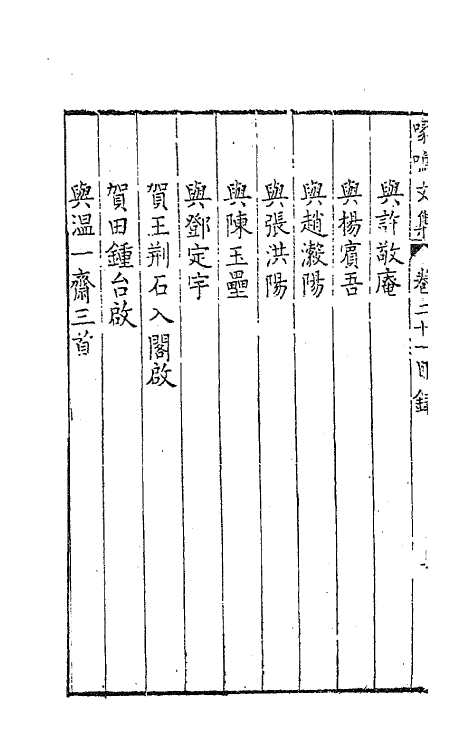 文集 卷二十一目錄
與許敬庵
與楊賓吾
與趙瀫陽
與張洪陽
與陳玉壘
與鄧定宇
賀王荊石入閣啟
賀田鍾台啟
與溫一齋三首